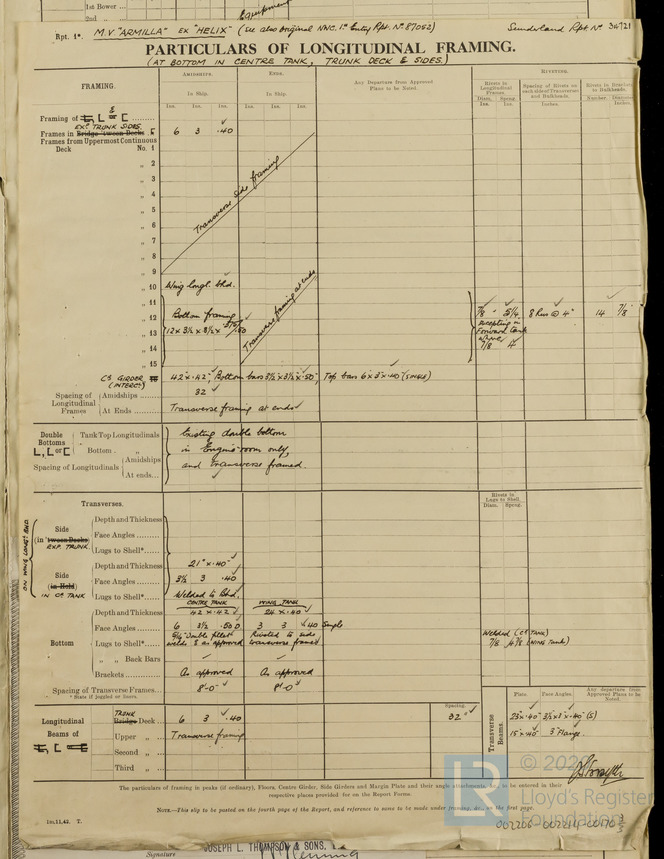 1st Bower
2nd
Equipment
Rpt. 1*. M.V "ARMILLA" EX "HELIX" (See also Original NWC. 1st Entry Rpt. No. 87052) Sunderland Rpt. No 34721
PARTICULARS OF LONGITUDINAL FRAMING.
(AT BOTTOM IN CENTRE TANK, TRUNK DECK & SIDES.)
FRAMING.
AMIDSHIPS.
ENDS.
Any Departure from Approved Plans to be Noted.
RIVETING.
In Ship.
In Ship.
Rivets in Longitudinal Frames.
Spacing of Rivets on each side of Transverses and Bulkheads.
Rivets in Brackets to Bulkheads.
Ins. Ins. Ins.
Ins. Ins. Ins.
Diam. Spcng.
Ins. Ins.
Inches
Number. Diameter
Inches
Framing of L or [
EXP. TRUNK SIDES.
Frames in Bridge 'tween Decks 6 3 .40
Frames from Uppermost Continuous
Deck No. 1
„ 2
„ 3
„ 4
„ 5
„ 6
„ 7
„ 8
„ 9
Transverse side framing
„ 10 Wing longl. bhd.
„ 11
„ 12 Bottom framing
„ 13 12 x 3½ x 3½ x
„ 14
„ 15
Transverse framing at ends
7/8 5¼ 8 Rows @ 4" 14 7/8
excepting in
Forward Tank
where
7/8 4
Cr. GIRDER (INTERC.) 42" x .42", Bottom bars 3½ x 3½ x .50", Top bars 6 x 3 x .40 (SINGLE)
Spacing of Longitudinal Frames
Amidships 32
At Ends Transverse framing at ends
Double Bottoms L, [ or [
Tank Top Longitudinals
Bottom „
Spacing of Longitudinals
Amidships
At ends
Existing double bottom
in Engine room only,
and transverse framed.
Transverses.
Rivets in Lugs to Shell.
Diam. Spcng.
ON WING LONGL BHD.
Side (in 'tween Decks) EXP. TRUNK
Depth and Thickness
Face Angles
Lugs to Shell*
Side (in Hold) IN Cr. TANK
Depth and Thickness 21" x .40"
Face Angles 3½ 3 .40
Lugs to Shell* Welded to Bhd.
CENTRE TANK WING TANK
Bottom
Depth and Thickness 42 x .42 24 x .40
Face Angles 6 3½ .50 3 3 .40 Single
Lugs to Shell* Double fillet Riveted to side
welds & as approved transverse frames
Welded (Cr TANK)
7/8 (WING TANK)
„ „ Back Bars
Brackets As approved As approved
Spacing of Transverse Frames 8'-0" 8'-0"
* State if joggled or liners.
Spacing.
Longitudinal Beams of
TRUNK
Bridge Deck 6 3 .40 32"
Upper „ Transverse framing
Second „
Third „
Transverse Beams.
Plate. Face Angles. Any departure from Approved Plans to be Noted.
25 x .40" 3½ x 3" x .40" (S)
15" x .40 3 Flange.
The particulars of framing in peaks (if ordinary), Floors, Centre Girder, Side Girders and Margin Plate and their angle attachments, &c., to be entered in their
respective places provided for on the Report Forms.
NOTE.—This slip to be posted on the fourth page of the Report, and reference to same to be made under framing, &c., on the first page.
1m.11.42. T.
LR
© 20
Lloyd's Register
Foundation
002206-002214-0017
JOSEPH L. THOMPSON & SONS, L
Signature